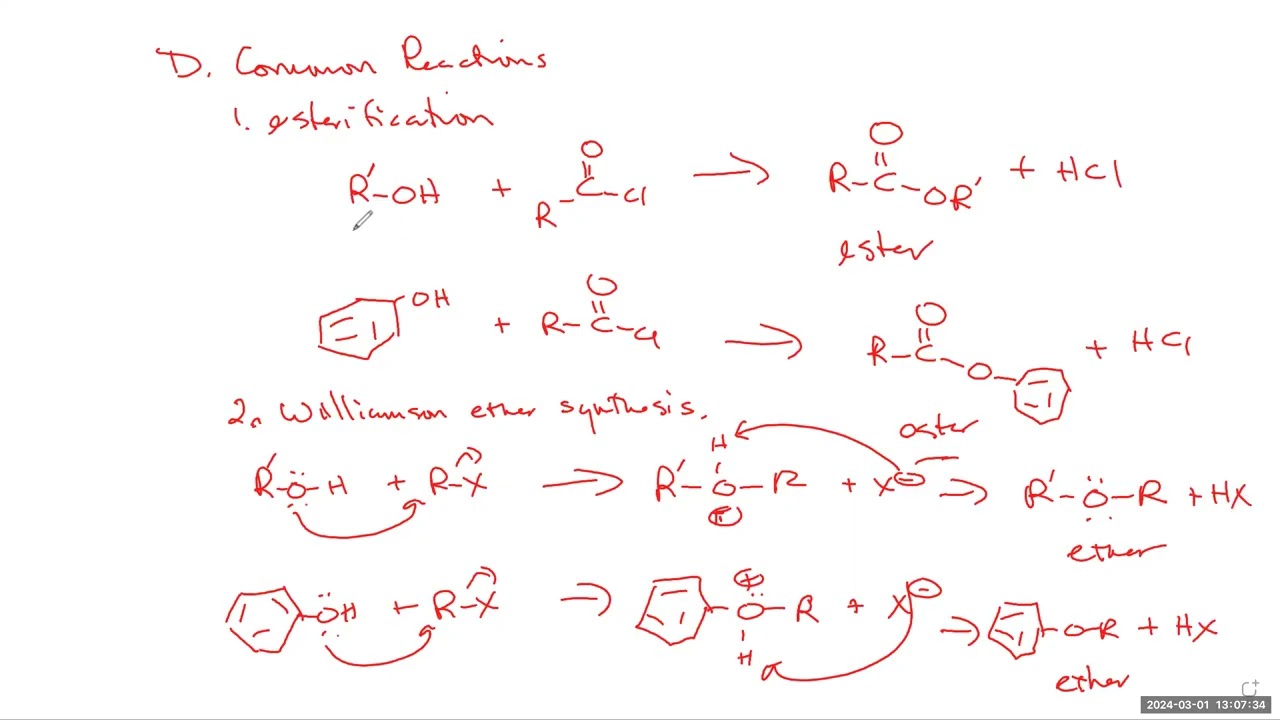 D. Common Reactions
1. esterification
R'-OH + R-C(=O)-Cl → R-C(=O)-OR' + HCl
ester
OH + R-C(=O)-Cl → R-C(=O)-O- + HCl
ester
2. Williamson ether synthesis.
R'-Ö-H + R-X → R'-O(H)⊕-R + X⊖ → R'-Ö-R + HX
ether
ÖH + R-X → Ö(H)⊕-R + X⊖ → O-R + HX
ether
2024-03-01 13:07:34